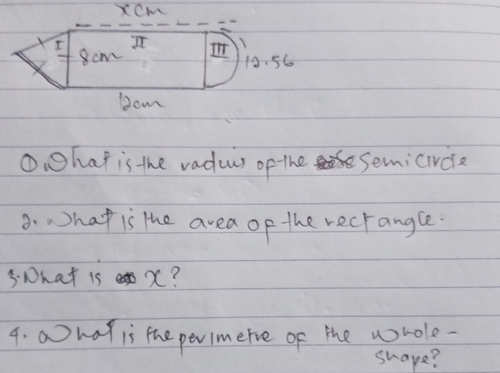 x cm
I II III
8cm
12.56
12cm
① What is the radius of the semicircle
2. What is the area of the rectangle.
3. What is x?
4. What is the perimetre of the whole-
shape?